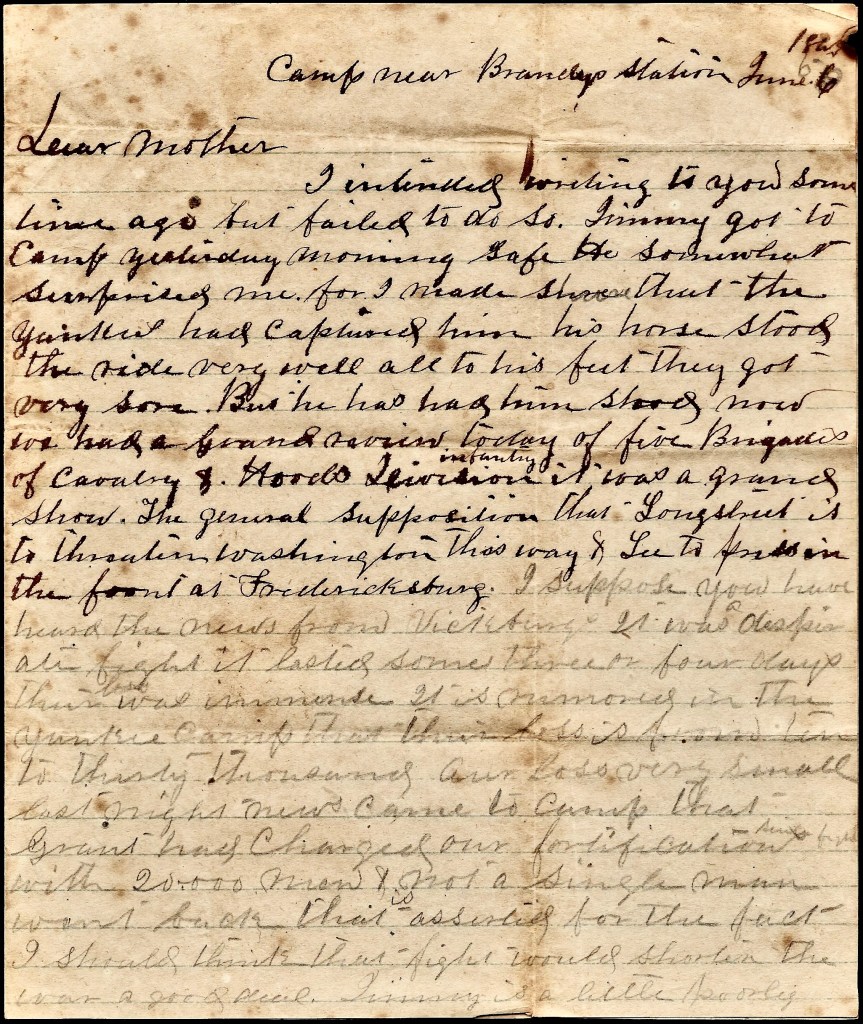 Camp near Brandys Station June 6
Dear Mother
I intended writing to you some
time ago but failed to do so. Jimmy got to
Camp yesterday morning safe He somewhat
surprised me. for I made shure that the
Yankies had captured him his horse stood
the ride very well all to his feet they got
very sore. But he has had him shood now
we had a Grand review today of five Brigades
of Cavalry & Hoods infantry Division it was a grand
show. The general supposition that Longstreet is
to threaten Washington this way & Lee to press in
the front at Fredericksburg. I suppose you have
heard the news from Vicksburg. It was a desper
ate fight it lasted some three or four days
their loss was immense It is rumored in the
Yankee Camp that their loss is from ten
to thirty thousand Our Loss very small
last night news came to Camp that
Grant had Charged our fortification
with 20.000 men & not a single man
went back that is asserted for the fact
I should think that fight would shorten the
war a good deal. Jimmy is a little poorly